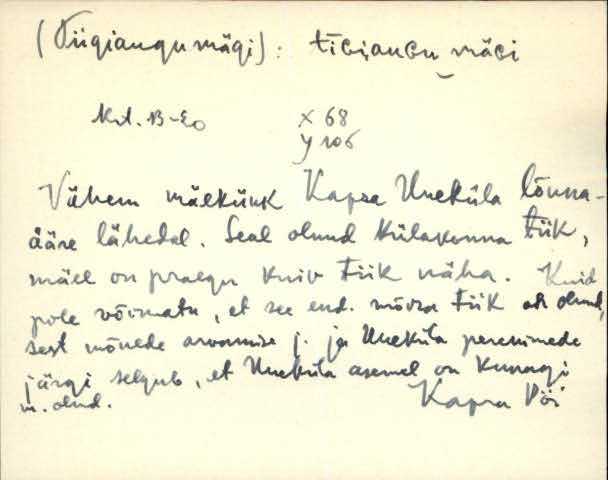 (Tiigiaugumägi): tīGiauGu mäGi
Krt. B-20
x 68
y 106
Vähem mäekünk Kapra Uueküla lõuna-
ääre lähedal. Seal olnud külakonna tiik,
mäel on praegu kuiv tiik näha. Kuid
pole võimatu, et see end. mõisa tiik oli olnud,
sest mõnede arvamise j. ja Uueküla perenimede
järgi selgub, et Uueküla asemel on kunagi
m. olnd.
Kapra Pöi